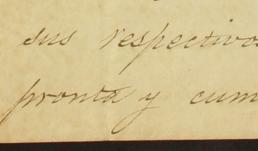 sus respectivo
pronta y cum